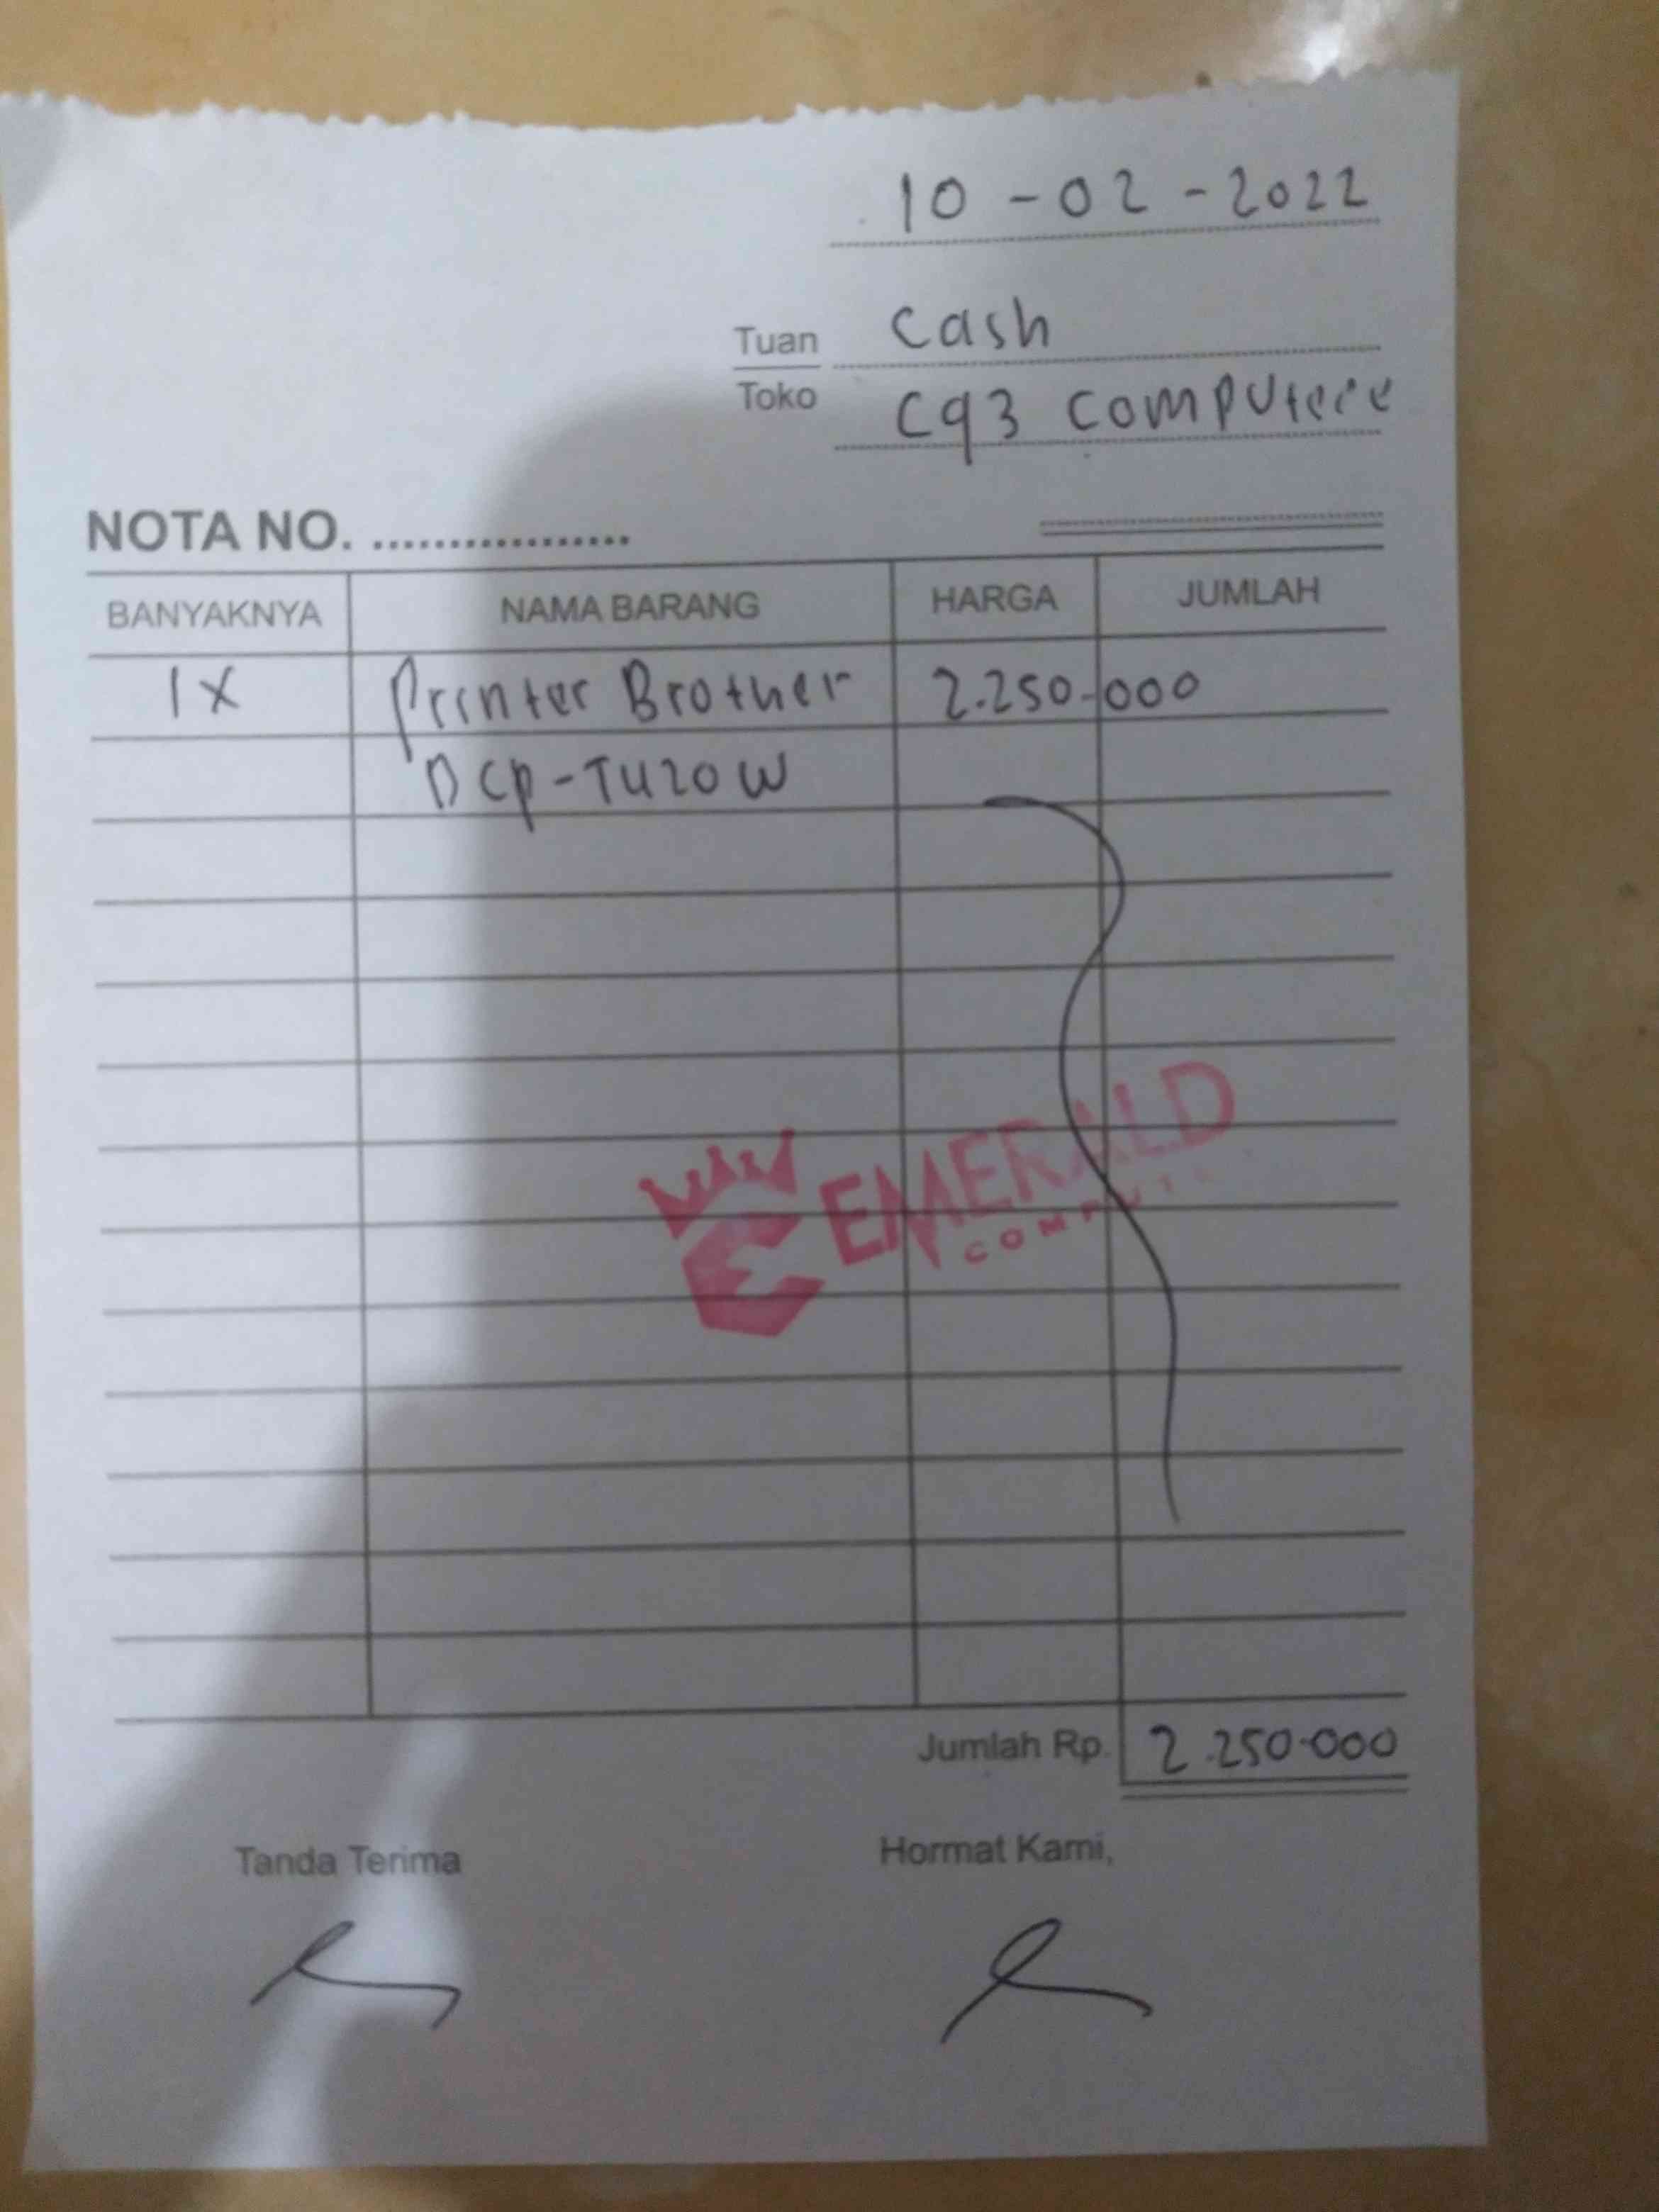 10 - 02 - 2022
Tuan Cash
Toko Cq3 Computere
NOTA NO. ..................
BANYAKNYA NAMA BARANG HARGA JUMLAH
1 X Printer Brother 2.250.000
DCP-T420W
EMERALD
COMPUTE
Jumlah Rp. 2.250.000
Tanda Terima Hormat Kami,